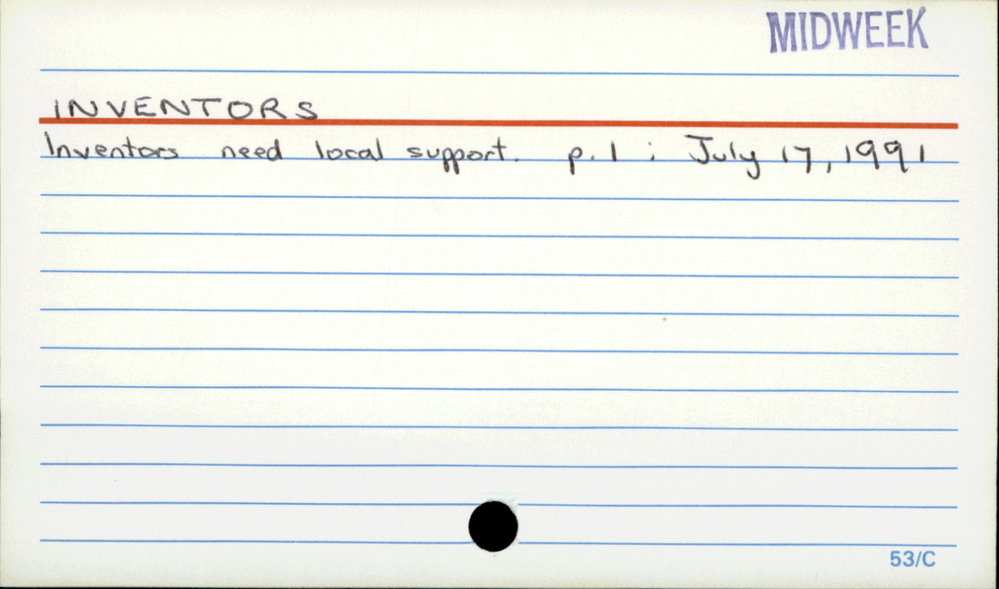 MIDWEEK
INVENTORS
Inventors need local support. p. 1 : July 17, 1991
53/C